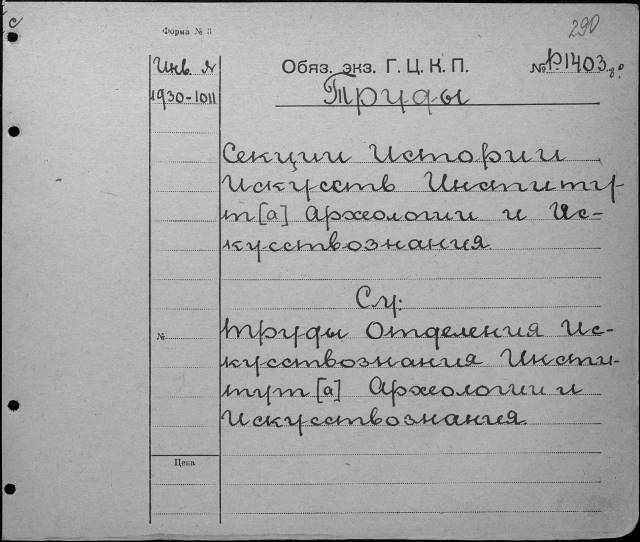 с
290
Форма № 3
Инв. №
Обяз. экз. Г. Ц. К. П.
№ Р1403 8°
1930-1011
Труды
Секции Истории
Искусств Институ-
т[а] Археологии и Ис-
кусствознания
См:
№
Труды Отделения Ис-
кусствознания Инсти-
тут[а] Археологии и
Искусствознания.
Цена